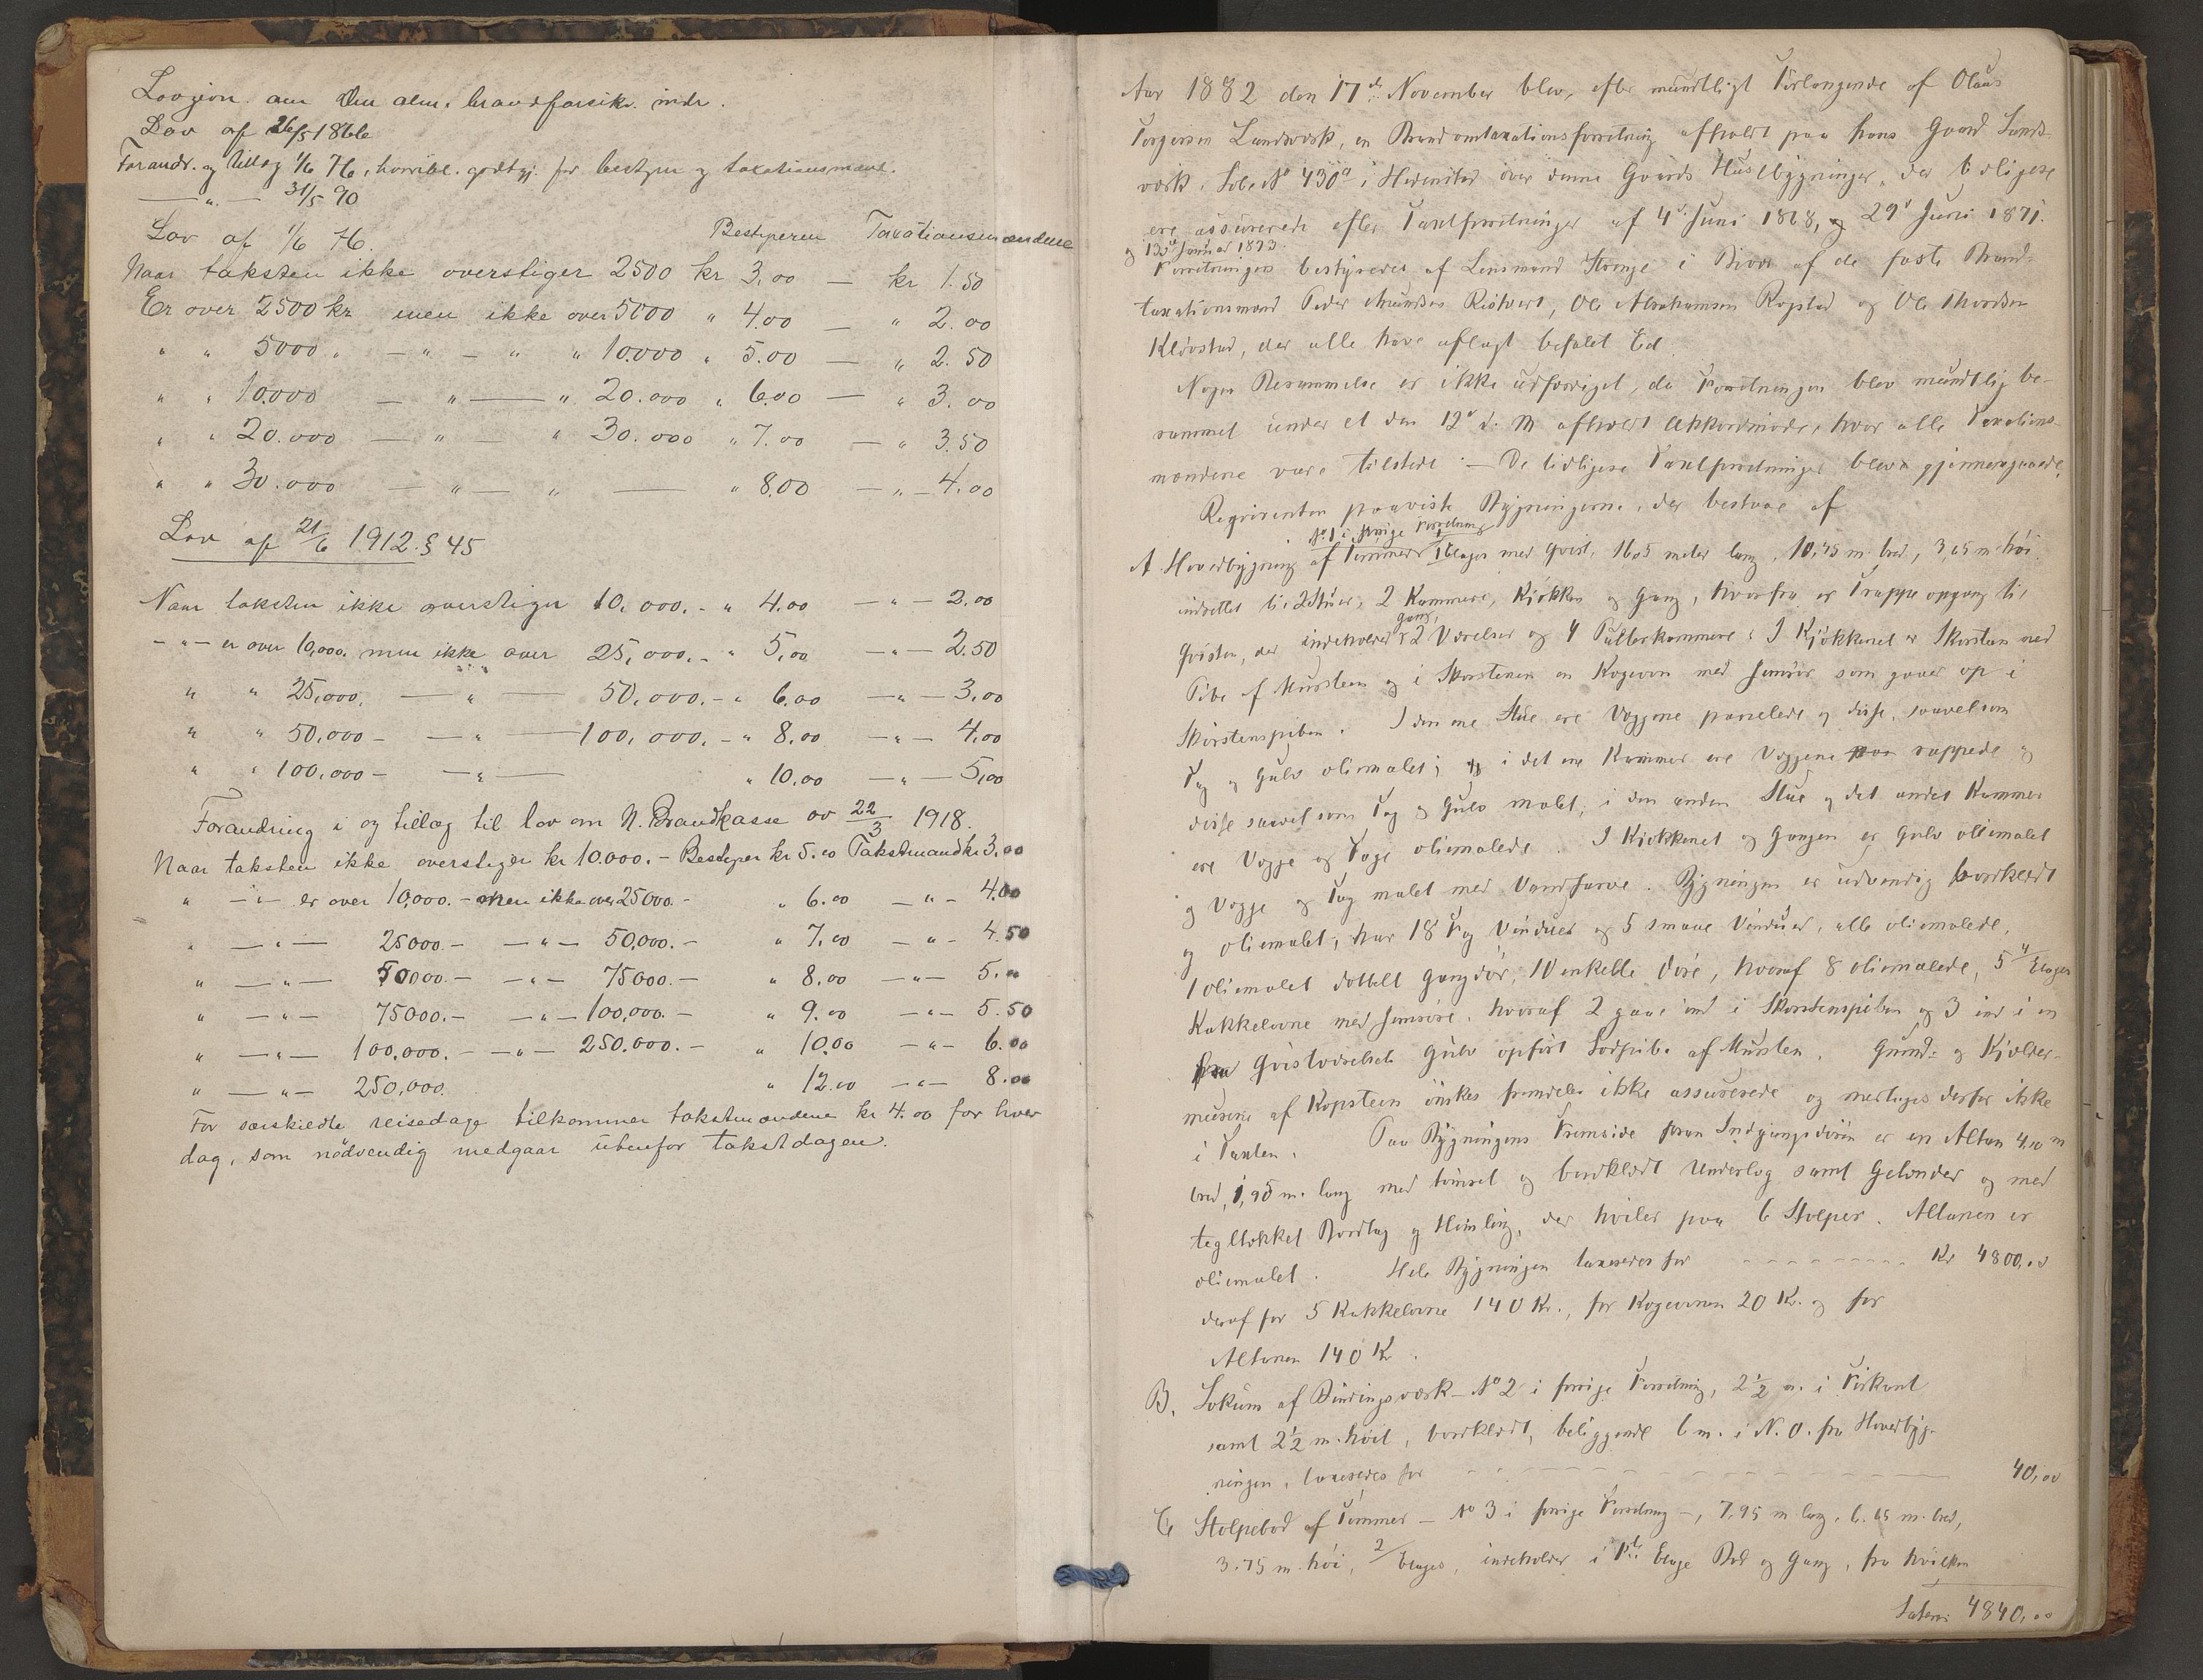 Lovgivn. om Den alm. brandforsikr. indr.
Lov af 26/5 1866
Forandr. og tillæg 1/6 76, godtgj. for bestyrer og taxationsmænd.
— " — 31/5 90
Lov af 1/6 76. Bestyreren Taxationsmændene
Naar taksten ikke overstiger 2500 kr 3,00 — kr 1.50
Er over 2500 kr men ikke over 5000 " 4.00 — " 2.00
" " 5000 " — " — " " 10.000 " 5.00 — " 2.50
" " 10.000 — " — " 20.000 " 6.00 — " 3.00
" " 20.000 — " — " 30.000 " 7.00 — " 3.50
" " 30.000 — " — " — " 8.00 — " — 4.00
Lov af 21/6 1912. § 45
Naar taksten ikke overstiger 10,000.- " 4.00 — " — 2.00
— " — er over 10,000. men ikke over 25,000.- " 5,00 — " — 2.50
" " 25,000. — " — 50,000.- " 6.00 — " — 3.00
" " 50,000 - — " — 100,000.- " 8.00 — " — 4.00
" " 100,000 - — " — " 10.00 — " — 5,00
Forandring i og tillæg til lov om N. Brandkasse av 22/3 1918.
Naar taksten ikke overstiger kr 10.000.- Bestyrer kr 5.00 Takstmand kr 3.00
" — " — er over 10,000.- men ikke over 25000.- " 6.00 — " — 4.00
" — " — 25000.- — " — 50,000.- " 7.00 — " — 4.50
" — " — 50000.- — " — 75000.- " 8.00 — " — 5.00
" — " — 75000.- — " — 100,000.- " 9.00 — " — 5.50
" — " — 100,000.- — " — 250.000.- " 10.00 — " — 6.00
" — " — 250,000. " 12.00 — " — 8.00
For særskildte reisedage tilkommer takstmændene kr 4.00 for hver
dag, som nödvendig medgaar utenfor takstdagen.
Aar 1882 den 17de November blev, efter mundtligt Forlangende af Olaus
Torgersen Landsverk, en Brandomtaxationsforretning afholdt paa hans Gaard Lands-
verk, Löbe No 430a i Hedenstad over denne Gaards Husebygninger, der tidligere
ere assurerede efter Taxtforretninger af 4de Juni 1868, og 29de Juni 1871.
og 13de Januar 1873.
Forretningen bestyredes af Lensmand Strenge i Bivær af de faste Brand-
taxationsmænd Peder Ristvedt, Ole Abrahamsen Ropstad og Ole Thordsen
Klövstad, der alle have aflagt befalet Ed.
Nogen Berammelse er ikke udfærdiget, da Forretningen blev mundtlig be-
rammet under et den 12te d. M. afholdt Akkordmöde, hvor alle Taxations-
mændene vare tilstede. — De tidligere Taxtforretninger blev gjennemgaaede.
Reqvirenten paaviste Bygningerne, der bestaar af
No. 1 i forrige Forretning
A. Hovedbygning af Tømmer 1 Etages med Qvist, 16,05 meter lang, 10,45 m. bred, 3,65 m. høi
indrettet til 2 Stuer, 2 Kammere, Kjøkken og Gang, hvorfra er Trappeopgang til
Gang,
Qvisten, der indeholder 2 Værelser og 4 Pulterkammere. I Kjøkkenet er Skorsten med
Pibe af Mursten og i Skorstenen en Kogeovn med Jernrör som gaaer op i
Skorstenspiben. I den ene Stue ere Væggene panelede og disse, saavelsom
Tag og Gulv oliemalet; i det ene Kammer ere Væggene rappede og
disse saavelsom Tag og Gulv malet; i den anden Stue og det andet Kammer
ere Vægge og Tage oliemalede. I Kjøkkenet og Gangen er Gulv oliemalet
og Vægge og Tag malet med Vandfarve. Bygningen er udvendig bordklædt
og oliemalet, har 18 Fag Vinduer og 5 smaae Vinduer, alle oliemalede,
1 oliemalet dobbelt Gangdör, 10 enkelte Döre, hvoraf 8 oliemalede, 5 Etages
Kakkelovne med Jernröre, hvoraf 2 gaae ind i Skorstenspiben og 3 ind i en
fra Qvistværelsets Gulv opført Sodpibe af Mursten. Grund- og Kjælder-
murene af Kopsteen önskes fremdeles ikke assurerede og medtages derfor ikke
i Taxten. Paa Bygningens Fremside foran Indgangsdören er en Altan 4,10 m
bred, 1,95 m. lang med tömret og bordklædt Underlag samt Gelænder og med
tegltækket Bordtag og Himling, der hviler paa 6 Stolper. Altanen er
oliemalet. Hele Bygningen taxeredes for - - - - - - - - Kr 4800,00
deraf for 5 Kakkelovne 140 Kr., for Kogeovnen 20 Kr. og for
Altanen 140 Kr.
B. Lokum af Bindingsværk - No 2 i forrige Forretning, 2½ m. i Firkant
samt 2½ m. höit, bordklædt, beliggende 6 m. i N. O. fra Hovedbyg-
ningen, taxeredes for - - - - - - - - 40,00
C Stolpebod af Tømmer - No 3 i forrige Forretning -, 7,95 m lang, 6.65 m. bred,
3.75 m. höi, 2 Etages, indeholder i 1ste Etage Bod og Gang, fra hvilken
Lateris 4840,00